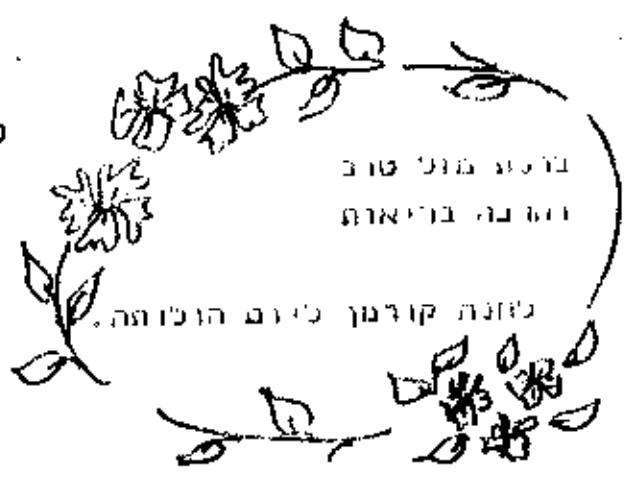 ברכת מזל טוב
והרבה בריאות
לחנה קורמן ליום הולדתה.